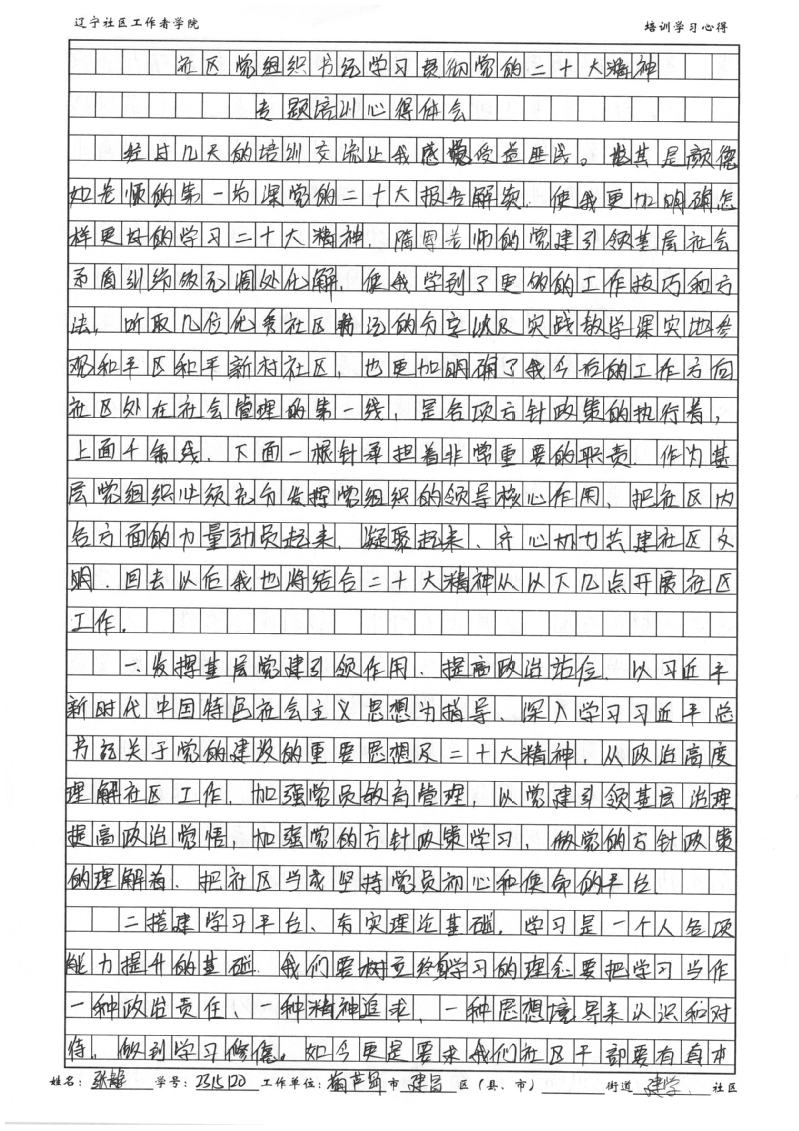 辽宁社区工作者学院 培训学习心得
社区党组织书记学习贯彻党的二十大精神
专题培训心得体会
经过几天的培训交流让我感觉受益匪浅。尤其是颜德
如老师的第一节课党的二十大报告解读，使我更加明确怎
样更好的学习二十大精神．隋 老师的党建引领基层社会
矛盾纠纷多元调处化解，使我学到了更多的工作技巧和方
法，听取几位优秀社区书记的分享以及实战教学课实地参
观和平区和平新村社区，也更加明确了我今后的工作方向
社区处在社会管理的第一线，是各项方针政策的执行者，
上面千条线，下面一根针承担着非常重要的职责．作为基
层党组织必须充分发挥党组织的领导核心作用，把社区内
各方面的力量动员起来，凝聚起来、齐心协力共建社区文
明．回去以后我也将结合二十大精神从以下几点开展社区
工作．
一、发挥基层党建引领作用．提高政治站位．以习近平
新时代中国特色社会主义思想为指导、深入学习习近平总
书记关于党的建设的重要思想及二十大精神，从政治高度
理解社区工作．加强党员教育管理，以党建引领基层治理
提高政治觉悟，加强党的方针政策学习，做党的方针政策
的理解者．把社区当成坚持党员初心和使命的平台
二搭建学习平台、夯实理论基础．学习是一个人各项
能力提升的基础．我们要树立终身学习的理念要把学习当作
一种政治责任、一种精神追求、一种思想境界来认识和对
待，做到学习修德。如今更是要求我们社区干部要有真本
姓名：张 学号：2315120 工作单位：葫芦岛市 建昌 区（县、市） 街道 建学 社区